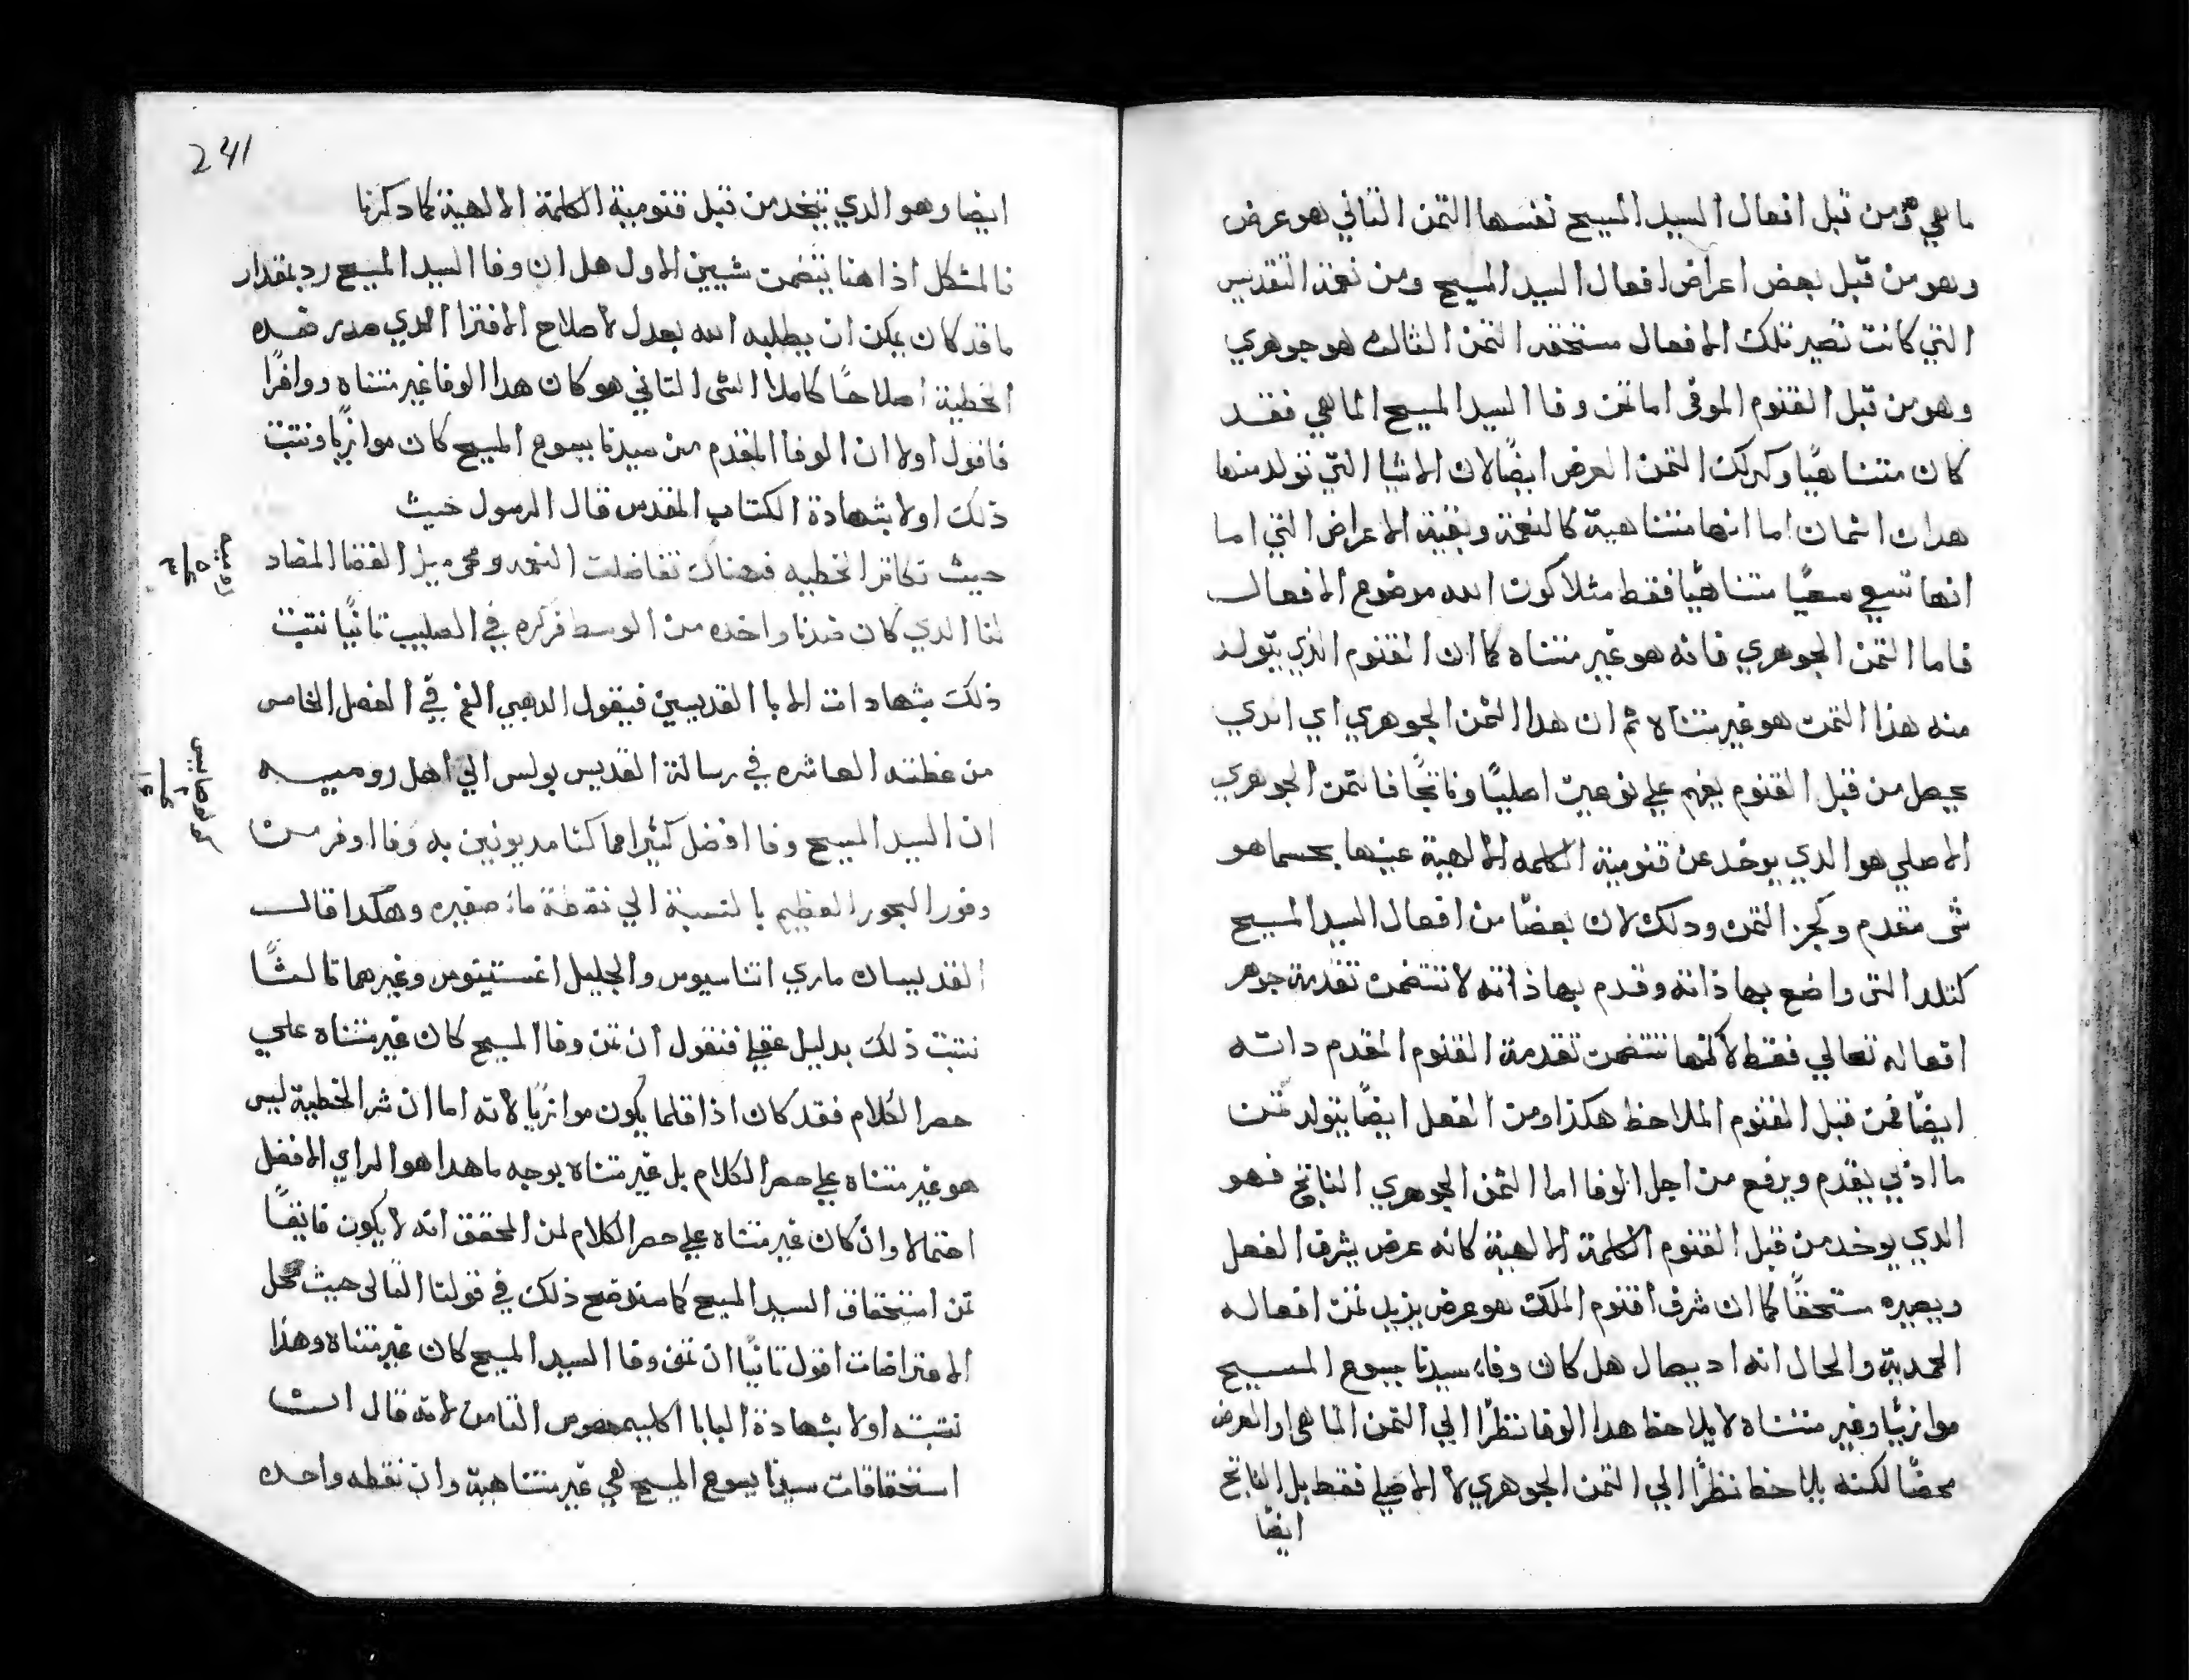 ما هي هي من قبل افعال السيد المسيح نفسها الثمن الثاني هو عرض
وهو من قبل بعض اعراض افعال السيد المسيح ومن نعمة التقديس
التي كانت تصير تلك الافعال مستحقه الثمن الثالث هو جوهري
وهو من قبل القنوم الموفى اما ثمن وفا السيد المسيح الماهي فقد
كان متناهيًا وكدلك الثمن العرض ايضًا لان الاشيا التي تولد منها
هدان اثمان اما انها متناهية كالنعمة وبقية الاعراض التي اما
انها تسعي سعيًا متناهيًا فقط مثلا كون الله موضوع الافعال
فاما الثمن الجوهري فانه هو غير متناه كما ان القنوم الذي يتولد
منه هذا الثمن هو غير متناه ثم ان هدا الثمن الجوهري اي الدي
يحصل من قبل القنوم يفهم علي نوعين اصليًا وناتجًا فالثمن الجوهري
الاصلي هو الدي يوخد عن قنومية الكلمه الالهية عينها بحسما هو
شي مقدم وكجز الثمن ودلك لان بعضًا من افعال السيد المسيح
كتلك التي واضع بها ذاته وقدم بها ذاته لا تتضمن تقدمة جوهر
افعاله تعالي فقط لاكنها تتضمن تقدمة القنوم المقدم داته
ايضًا فمن قبل القنوم الملاحظ هكذا ومن الفعل ايضًا يتولد ثمن
ما اذبي يقدم ويرفع من اجل الوفا اما الثمن الجوهري الناتج فهو
الدي يوخد من قبل القنوم الكلمة الالهية كانه عرض يشرف الفعل
ويصيره مستحقًا كما ان شرف اقنوم الملك هو عرض يزيد ثمن افعاله
الحمدية والحال انه اد يسال هل كان وفاء سيدنا يسوع المسيح
موازيًا وغير متناه لا يلاحظ هدا الوفا نظرًا الي الثمن الماهي او العرض
محضًا لكنه يلاحظ نظرًا الي الثمن الجوهري لا الاصلي فقط بل الناتج
ايضًا
241
ايضا وهو الدي يتخد من قبل قنومية الكلمة الالهية كما دكرنا
فالمشكل اذا هنا يتضمن شيين الاول هل ان وفا السيد المسيح رد بمقدار
ما قد كان يمكن ان يطلبه الله بعدل لاصلاح الافترا الدي صدر ضده
الخطية اصلاحًا كاملا الشي الثاني هو كان هدا الوفا غير متناه ووافرًا
فاقول اولا ان الوفا المقدم من سيدنا يسوع المسيح كان موازيًا ونثبت
ذلك اولا بشهادة الكتاب المقدس قال الرسول حيث
حيث تكاثر الخطيه فهناك تفاضلت النعمه ومحى ميل القضا المضاد
لنا الدي كان ضدنا واخده من الوسط فركزه في الصليب ثانيًا نثبت
ذلك بشهادات الابا القديسين فيقول الدهبي الفم في الفصل الخامس
من عظته العاشره في رسالة القديس بولس الي اهل روميه
ان السيد المسيح وفا افضل كثيرا مما كنا مديونين به وفا اوفر من
وفور البحور العظيم بالنسبة الي نقطة ماء صغيره وهكدا قال
القديسان ماري اتناسيوس والجليل اغستينوس وغيرهما ثالثًا
نثبت ذلك بدليل عقلي فنقول ان ثمن وفا المسيح كان غير متناه علي
حصر الكلام فقد كان اذا قلما يكون موازيًا لانه اما ان شر الخطية ليس
هو غير متناه علي حصر الكلام بل غير متناه بوجه ما هدا هو الراي الافضل
احتمالا وان كان غير متناه علي حصر الكلام لمن المحقق انه لا يكون فايقًا
ثمن استحقاق السيد المسيح كما سنوضح ذلك في قولنا التالى حيث نحل
الاعتراضات اقول ثانيًا ان ثمن وفا السيد المسيح كان غير متناه وهذا
نثبته اولا بشهادة البابا اكليمنضوس الثامن لانه قال ان
استحقاقات سيدنا يسوع المسيح هي غير متناهية وان نقطه واحده